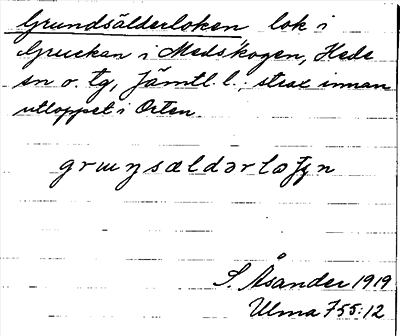 Grundsälderloken lok i
Gruckan i Medskogen, Hede
sn o. tg, Jämtl. l.; strax innan
utloppet i Orten.
S. Åsander 1919
Ulma 755:12